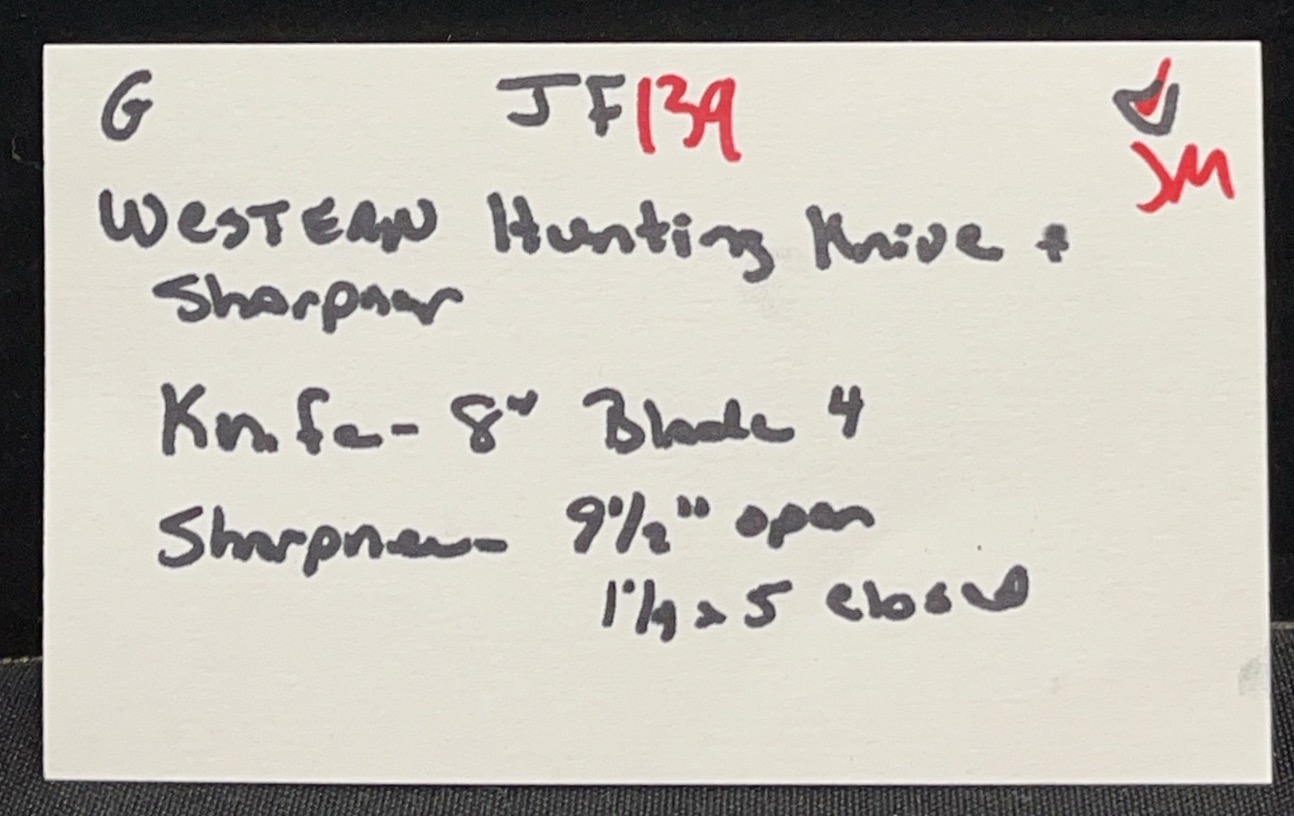 G JF139
JM
WESTERN Hunting Knive +
Sharpner
Knife- 8" Blade 4
Sharpner- 9 1/2" open
1 1/4 x 5 closed